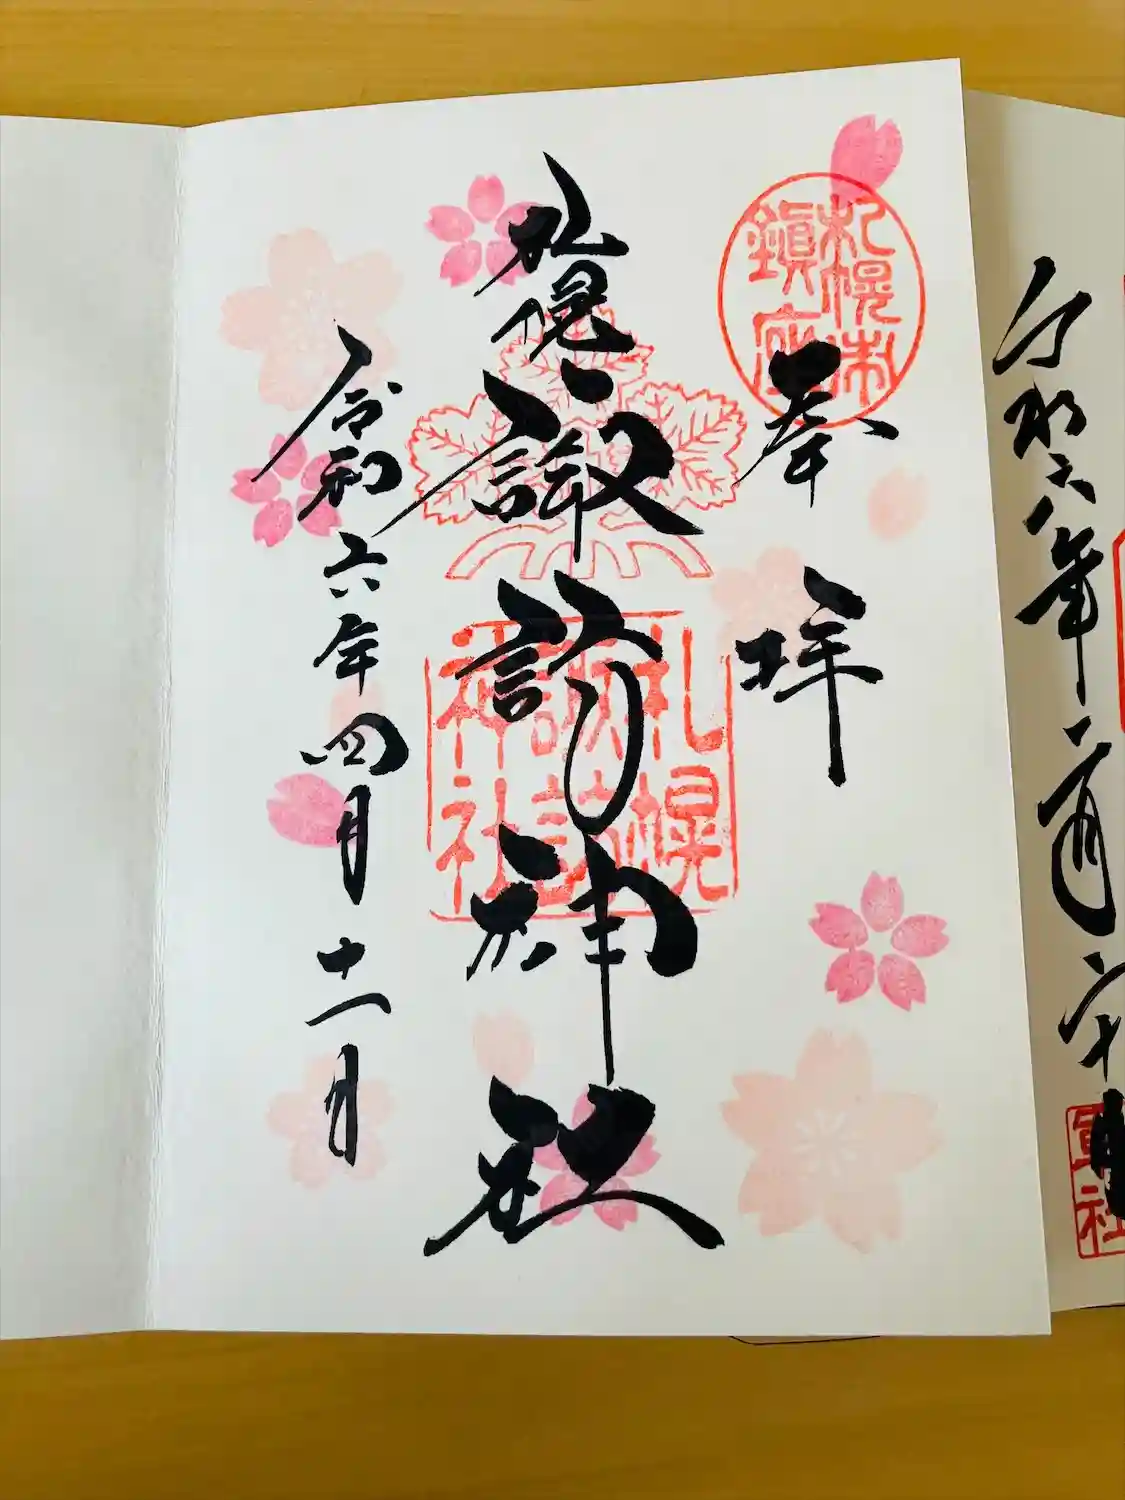 令和六年
札幌市
鎭座
奉拝
札幌
諏訪神社
札幌
諏訪
神社
令和六年四月十一日